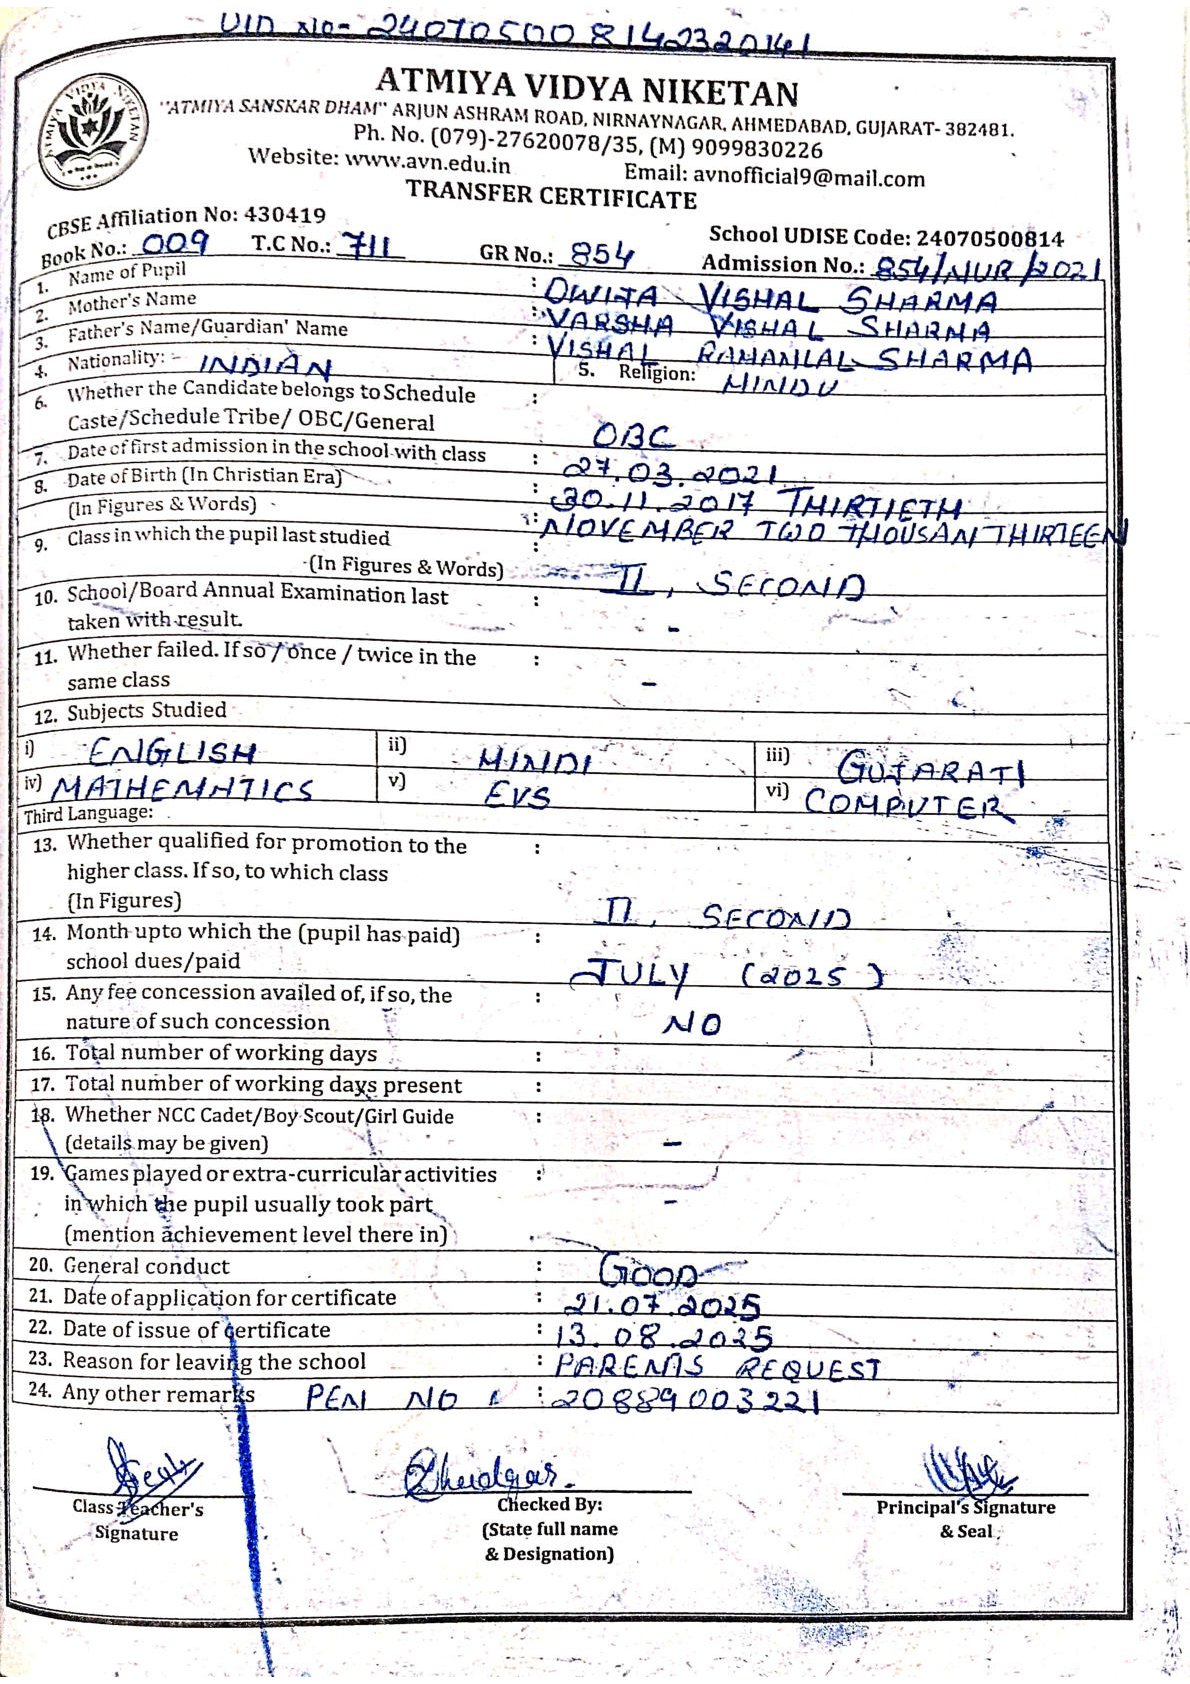 UID No- 240705008142320141
ATMIYA VIDYA NIKETAN
ATMIYA VIDYA NIKETAN
"ATMIYA SANSKAR DHAM" ARJUN ASHRAM ROAD, NIRNAYNAGAR, AHMEDABAD, GUJARAT- 382481.
Ph. No. (079)-27620078/35, (M) 9099830226
Website: www.avn.edu.in Email: avnofficial9@mail.com
TRANSFER CERTIFICATE
CBSE Affiliation No: 430419 School UDISE Code: 24070500814
Book No.: 009 T.C No.: 711 GR No.: 854 Admission No.: 854/NUR/2021
1. Name of Pupil : DWIJA VISHAL SHARMA
2. Mother's Name : VARSHA VISHAL SHARMA
3. Father's Name/Guardian' Name : VISHAL RAMANLAL SHARMA
4. Nationality: - INDIAN 5. Religion: HINDU
6. Whether the Candidate belongs to Schedule :
Caste/Schedule Tribe/ OBC/General OBC
7. Date of first admission in the school with class : 27.03.2021
8. Date of Birth (In Christian Era) : 30.11.2017 THIRTIETH
(In Figures & Words) : NOVEMBER TWO THOUSAN THIRTEEN
9. Class in which the pupil last studied :
(In Figures & Words) II, SECOND
10. School/Board Annual Examination last :
taken with result. -
11. Whether failed. If so / once / twice in the :
same class -
12. Subjects Studied
i) ENGLISH ii) HINDI iii) GUJARATI
iv) MATHEMATICS v) EVS vi) COMPUTER
Third Language:
13. Whether qualified for promotion to the :
higher class. If so, to which class
(In Figures) II, SECOND
14. Month upto which the (pupil has paid) :
school dues/paid JULY (2025)
15. Any fee concession availed of, if so, the :
nature of such concession NO
16. Total number of working days :
17. Total number of working days present :
18. Whether NCC Cadet/Boy Scout/Girl Guide :
(details may be given) -
19. Games played or extra-curricular activities :
in which the pupil usually took part -
(mention achievement level there in)
20. General conduct : GOOD
21. Date of application for certificate : 21.07.2025
22. Date of issue of certificate : 13.08.2025
23. Reason for leaving the school : PARENTS REQUEST
24. Any other remarks PEN NO : 20889003221
Class Teacher's Checked By: Principal's Signature
Signature (State full name & Seal
& Designation)